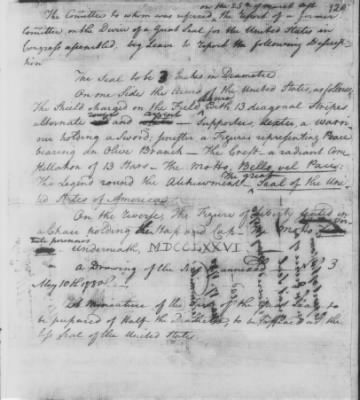 on the 25th of March last 120
The Committee to whom was referred, the report of a former
Committee, on the Device of a Great Seal for the United States in
Congress assembled, beg Leave to report the following Descrip-
tion
The Seal to be 3 Inches in Diameter
On one Side the Arms of the United States, as follows,
The Shield charged on the Field with 13 diagonal Stripes
alternate and Supporters, dexter, a Warri-
our holding a Sword; sinister a Figure representing Peace
bearing an Olive Branch – The Crest a radiant Con-
stellation of 13 Stars – The Motto, Bello vel Pace.
The Legend round the Atchievement, the great Seal of the Uni-
ted States of America
On the Reverse, The Figure of Liberty seated in
a Chair holding the Staff and Cap – The Motto
Underneath, MDCCLXXVI
a Drawing of the annexed No. 3
May 10th. 1780
A Miniature of the of the great Seal to
be prepared of half the Diameter, to be as the
less Seal of the United States